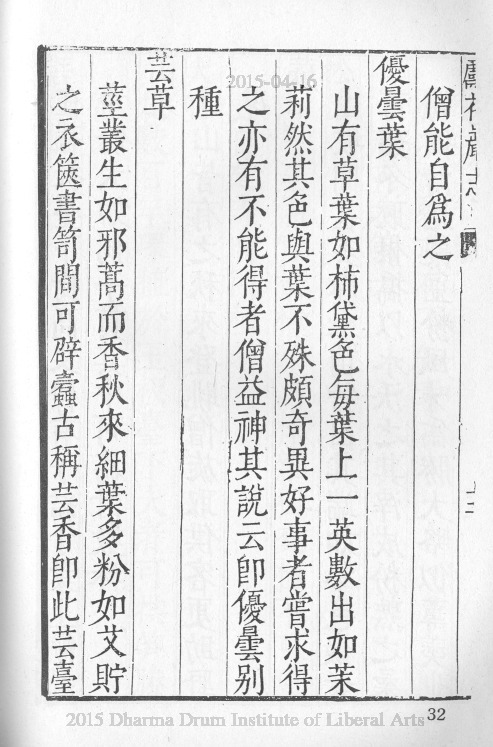 僧能自爲之
優曇葉
山有草葉如柿黛色每葉上一英數出如茉
莉然其色與葉不殊頗奇異好事者嘗求得
之亦有不能得者僧益神其說云卽優曇别
種
芸草
莖叢生如邪蒿而香秋來細葉多粉如艾貯
之衣篋書笥間可辟蠹古稱芸香卽此芸臺
2015-04-16
32
2015 Dharma Drum Institute of Liberal Arts